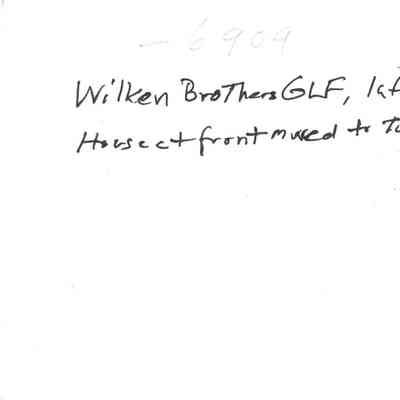 - 6909
Wilken Brothers GLF, lat
House at front moved to To